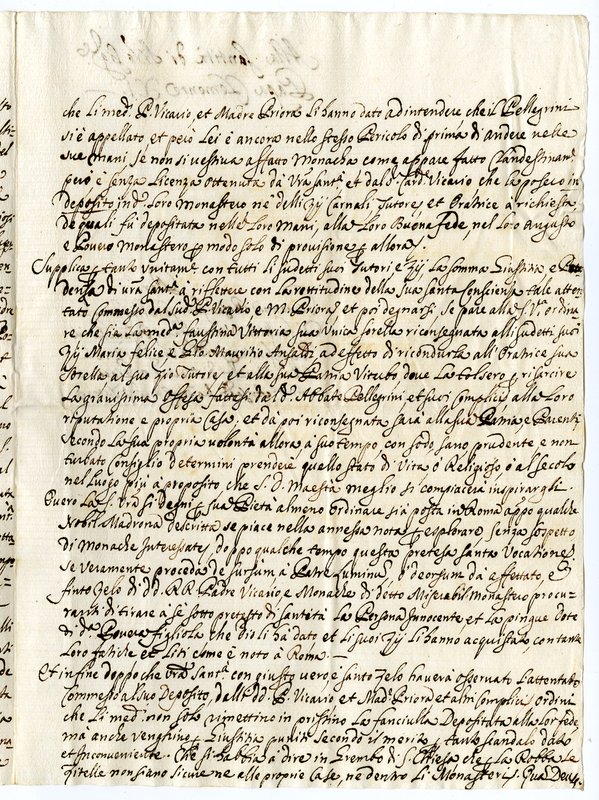 che li med.i P. Vicario, et Madre Priora li hanno dato ad intendere che il Pellegrini
si è appellato et però Lei è ancora nello stesso Pericolo di prima di andare nelle
sue mani se non si vestiva affatto Monacha come appare fatto Clandestinam.te
però è senza Licenza ottenuta dà V.ra Sant.tà et dal Card.le Vicario che la posero in
deposito in d.o loro Monastero né delli Zij Carnali Tutore, et Oratrice a richiesta
de quali fù depositata nelle loro Mani, alla loro Buona Fede, nel loro Angusto
e Povero Monastero p modo solo di provisione p allora.
Supplica p tanto unitam.te con tutti li sudetti suoi Tutori e Zij La somma Giustizia, e Pru
denza di V.ra Sant.tà à riflettere con la rettitudine della Sua Santa Consienza tale atten
tato Commesso dal sud.o P. Vicario e M. Priora, et poi degnarsi se pare alla S.tà V. ordina
re che sia la med.a faustina Vittoria sua Unica sorella riconsegnata alli sudetti suoi
Zij Maria felice e Gio. Mauritio Ansaldi ad effetto di ricondurla all'Oratrice sua
sorella al suo Zio Tutore et alla sua Patria Viterbo dove la tolsero, p risarcire
La gravissima Offesa fattasi dal d.o Abbate Pellegrini et suoi Complici alla loro
riputatione e propria Casa, et dà poi riconsegnata sarà alla sua Patria e Parenti
secondo la sua propria volontà allora à suo tempo con sodo sano prudente e non
turbato Consiglio determini prendere quello stato di Vita ò Religioso, ò al secolo
nel luogo più à proposito che S. D. Maestà meglio si compiacerà inspirargli.
Overo La S.tà V.ra si Degni p sua Pietà almeno ordinare sia posta in Roma appo qualche
Nobil Madrona descritta se piace nella annessa nota p esplorare senza sospetto
di Monache Interessate, doppo qualche tempo questa pretesa santa Vocatione
se veramente proceda de sursum à Patre luminum, ò deorsum dà affettato, e
finto Zelo di dd. RR. Padre Vicario e Monache di detto Miserabil Monastero procu-
ranti di tirare à sé sotto pretesto di santità La Persona Innocente et La pingue Dote
di d.a Povera figliola che Dio li hà dato et li suoi Zij li hanno acquistato, con tante
Loro fatiche et Liti come è noto à Roma —
Et in fine doppo che V.ra Sant.tà con giusto vero e santo Zelo haverà osservato l'attentato
Commesso al suo Deposito, dalli dd. P. Vicario et Mad.e Priora et altri Complici, ordini
che li med.i non solo rimettino in pristino La fanciulla Depositata alla lor fede
ma anche venghino p Giustitia puniti secondo il merito p tanto scandalo dato
et Inconveniente. Che si habbia à dire in Grembo di S. Chiesa che p La Robba Le
Zitelle non siano sicure ne alle proprie Case, né dentro li Monasterij. Quã Deus.